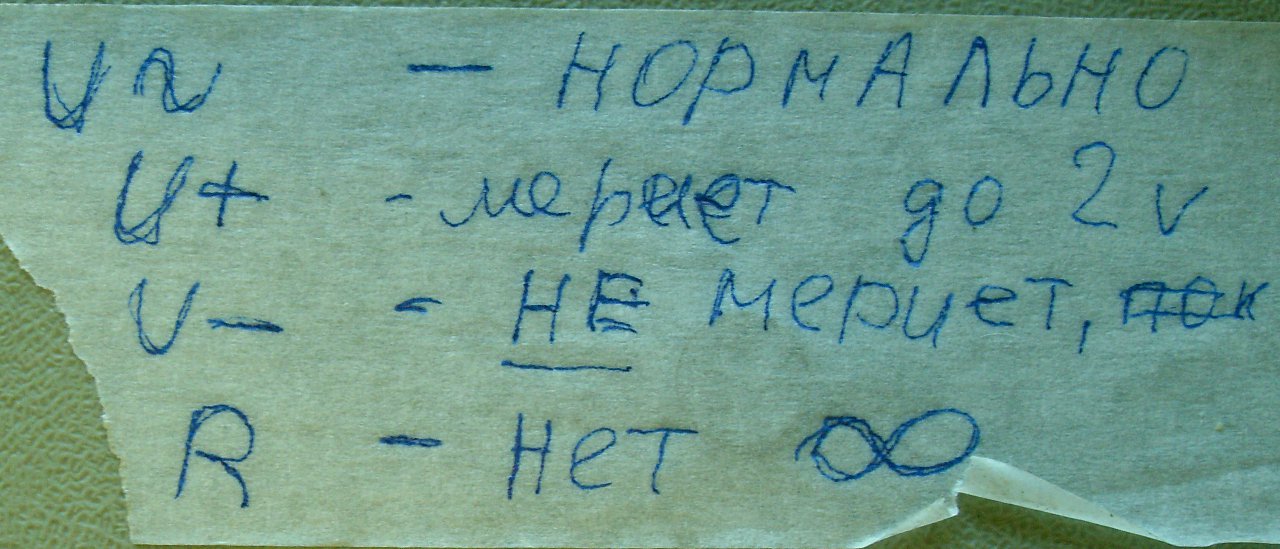 U~ - НОРМАЛЬНО
U+ - мериет до 2v
U- - НЕ мериет,
R - нет ∞